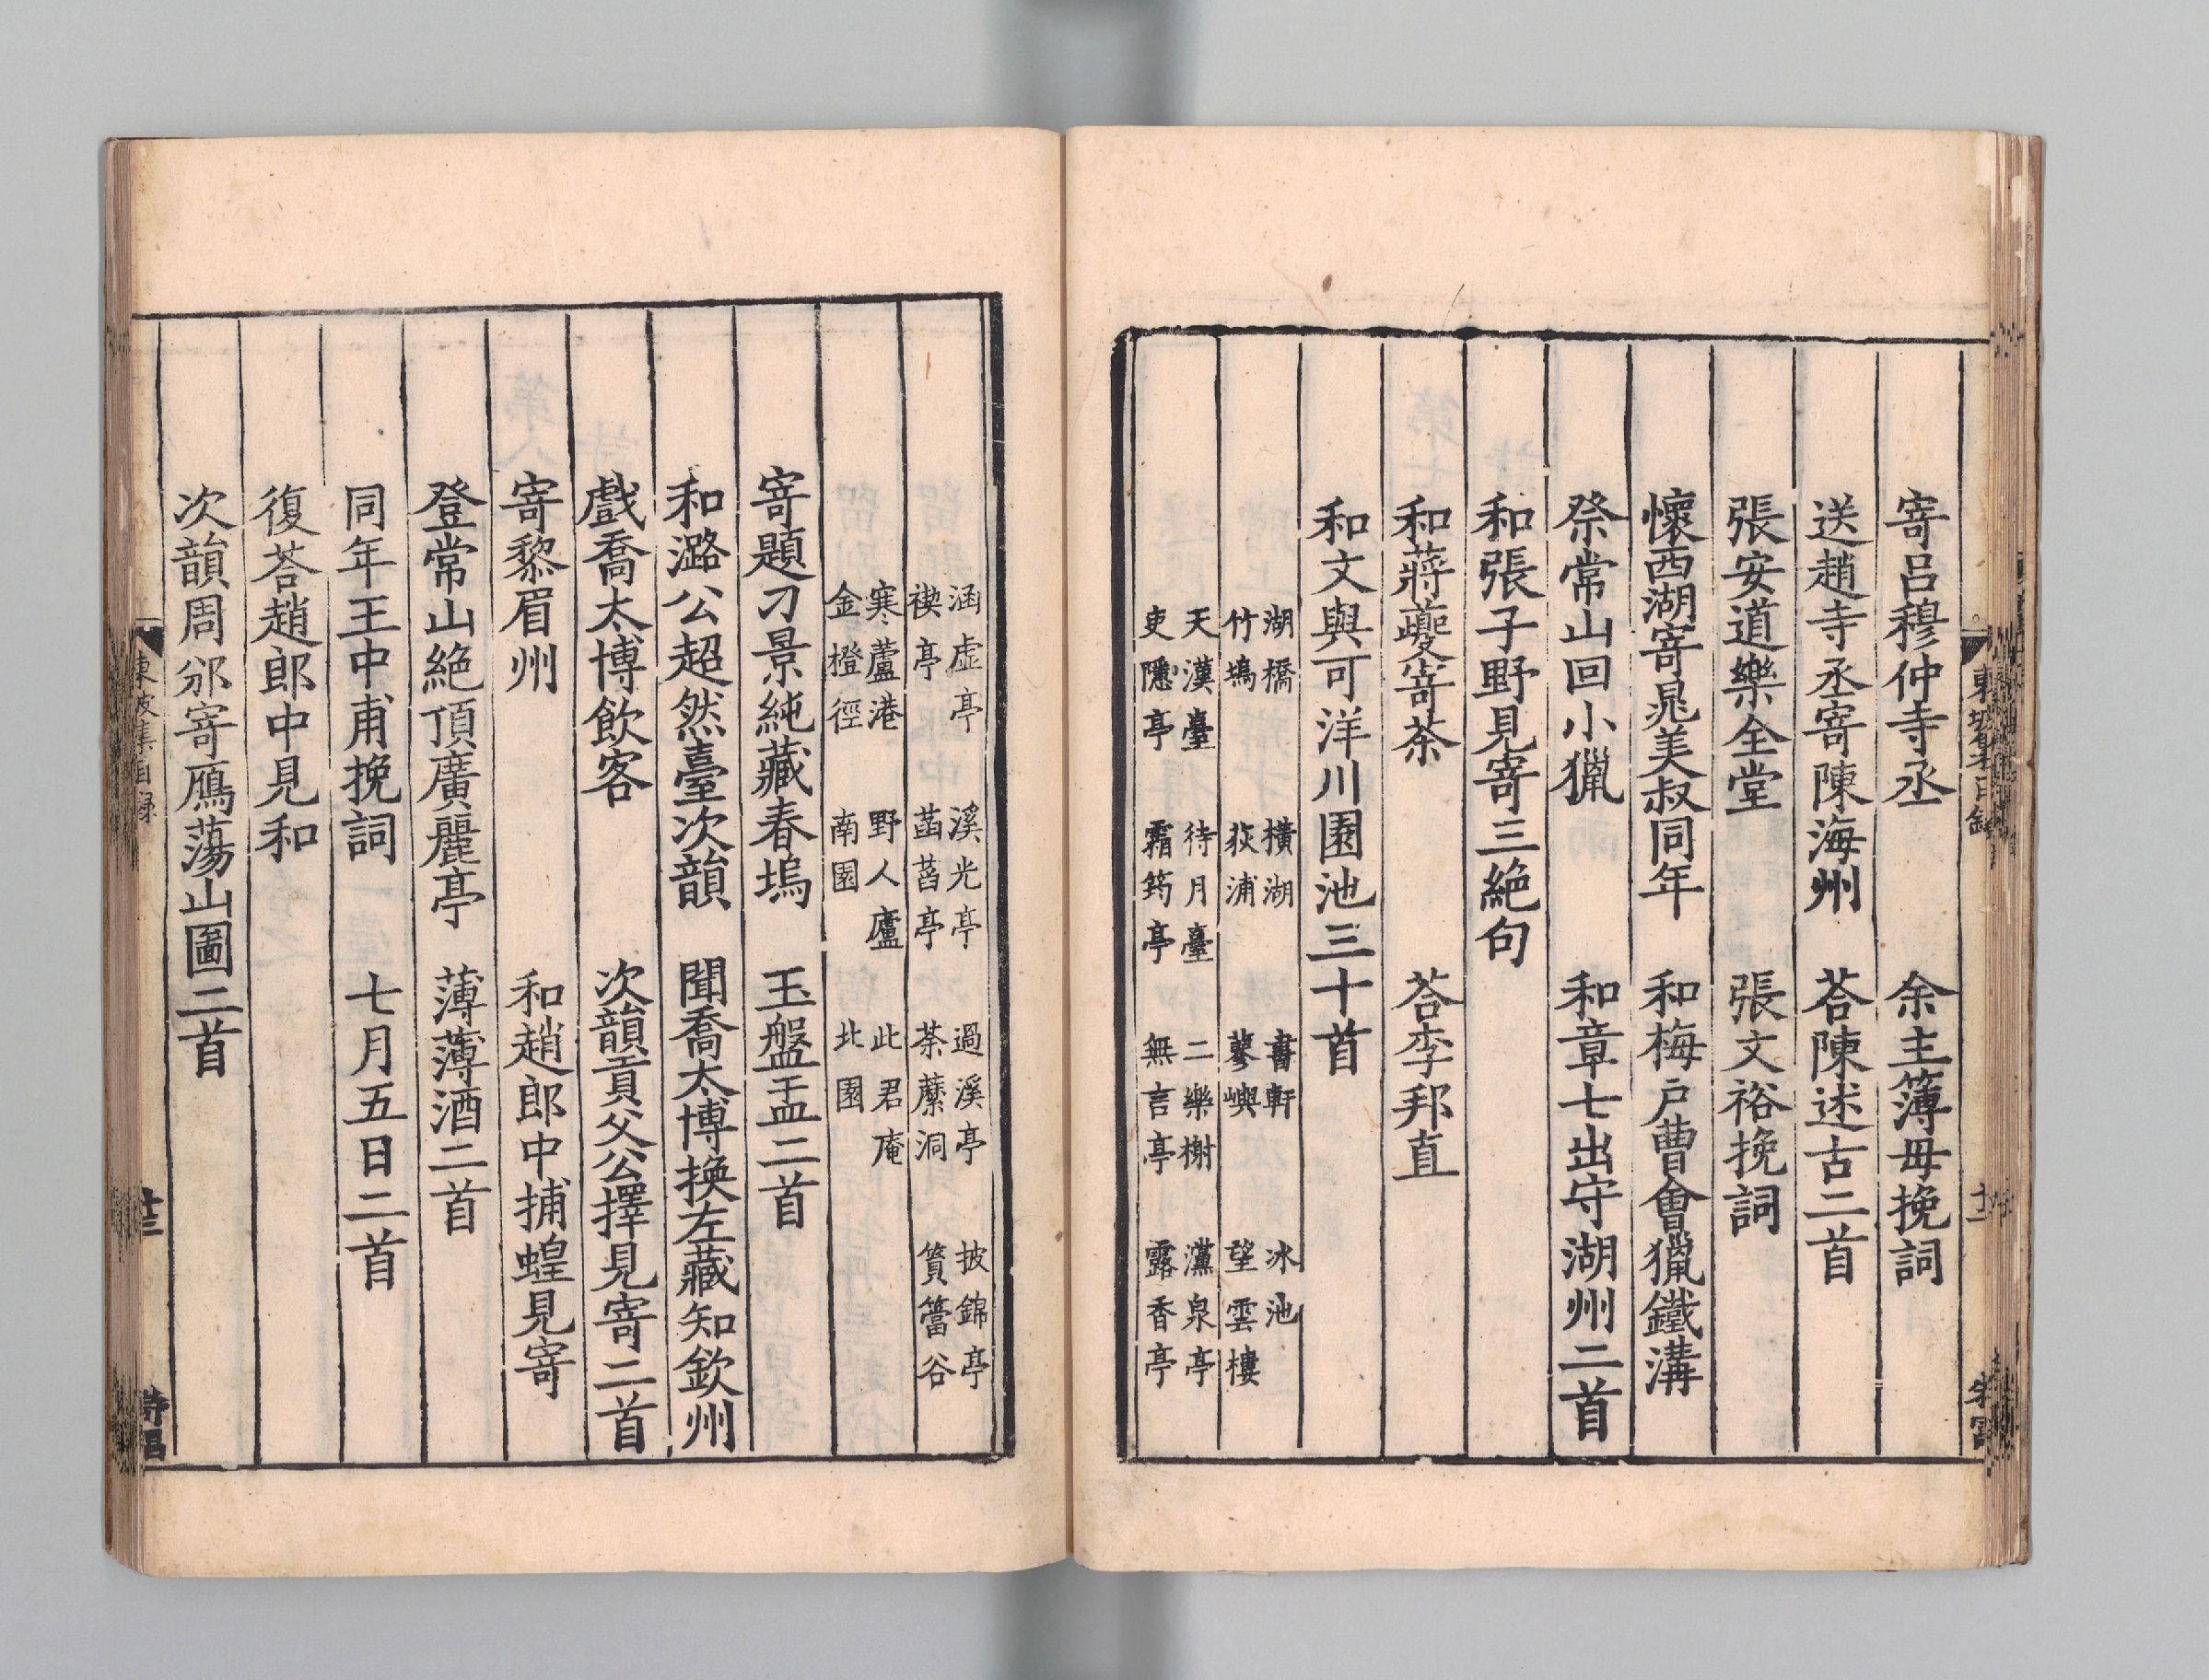 寄呂穆仲寺丞　余主簿母挽詞
送趙寺丞寄陳海州　荅陳述古二首
張安道樂全堂　張文裕挽詞
懷西湖寄晁美叔同年　和梅戶曹會獵鐵溝
祭常山回小獵　和章七出守湖州二首
和張子野見寄三絕句
和蔣夔寄茶　荅李邦直
和文與可洋川園池三十首
湖橋　橫湖　書軒　冰池
竹塢　荻浦　蓼嶼　望雲樓
天漢臺　待月臺　二樂榭　灙泉亭
吏隱亭　霜筠亭　無言亭　露香亭
東坡集目錄
涵虛亭　溪光亭　過溪亭　披錦亭
禊亭　菡萏亭　荼蘼洞　篔簹谷
寒蘆港　野人廬　此君庵
金橙徑　南園　北園
寄題刁景純藏春塢　玉盤盂二首
和潞公超然臺次韻　聞喬太博換左藏知欽州
戲喬太博飲客　次韻貢父公擇見寄二首
寄黎眉州　和趙郎中捕蝗見寄
登常山絕頂廣麗亭　薄薄酒二首
同年王中甫挽詞　七月五日二首
復荅趙郎中見和
次韻周邠寄鴈蕩山圖二首
東坡集目録